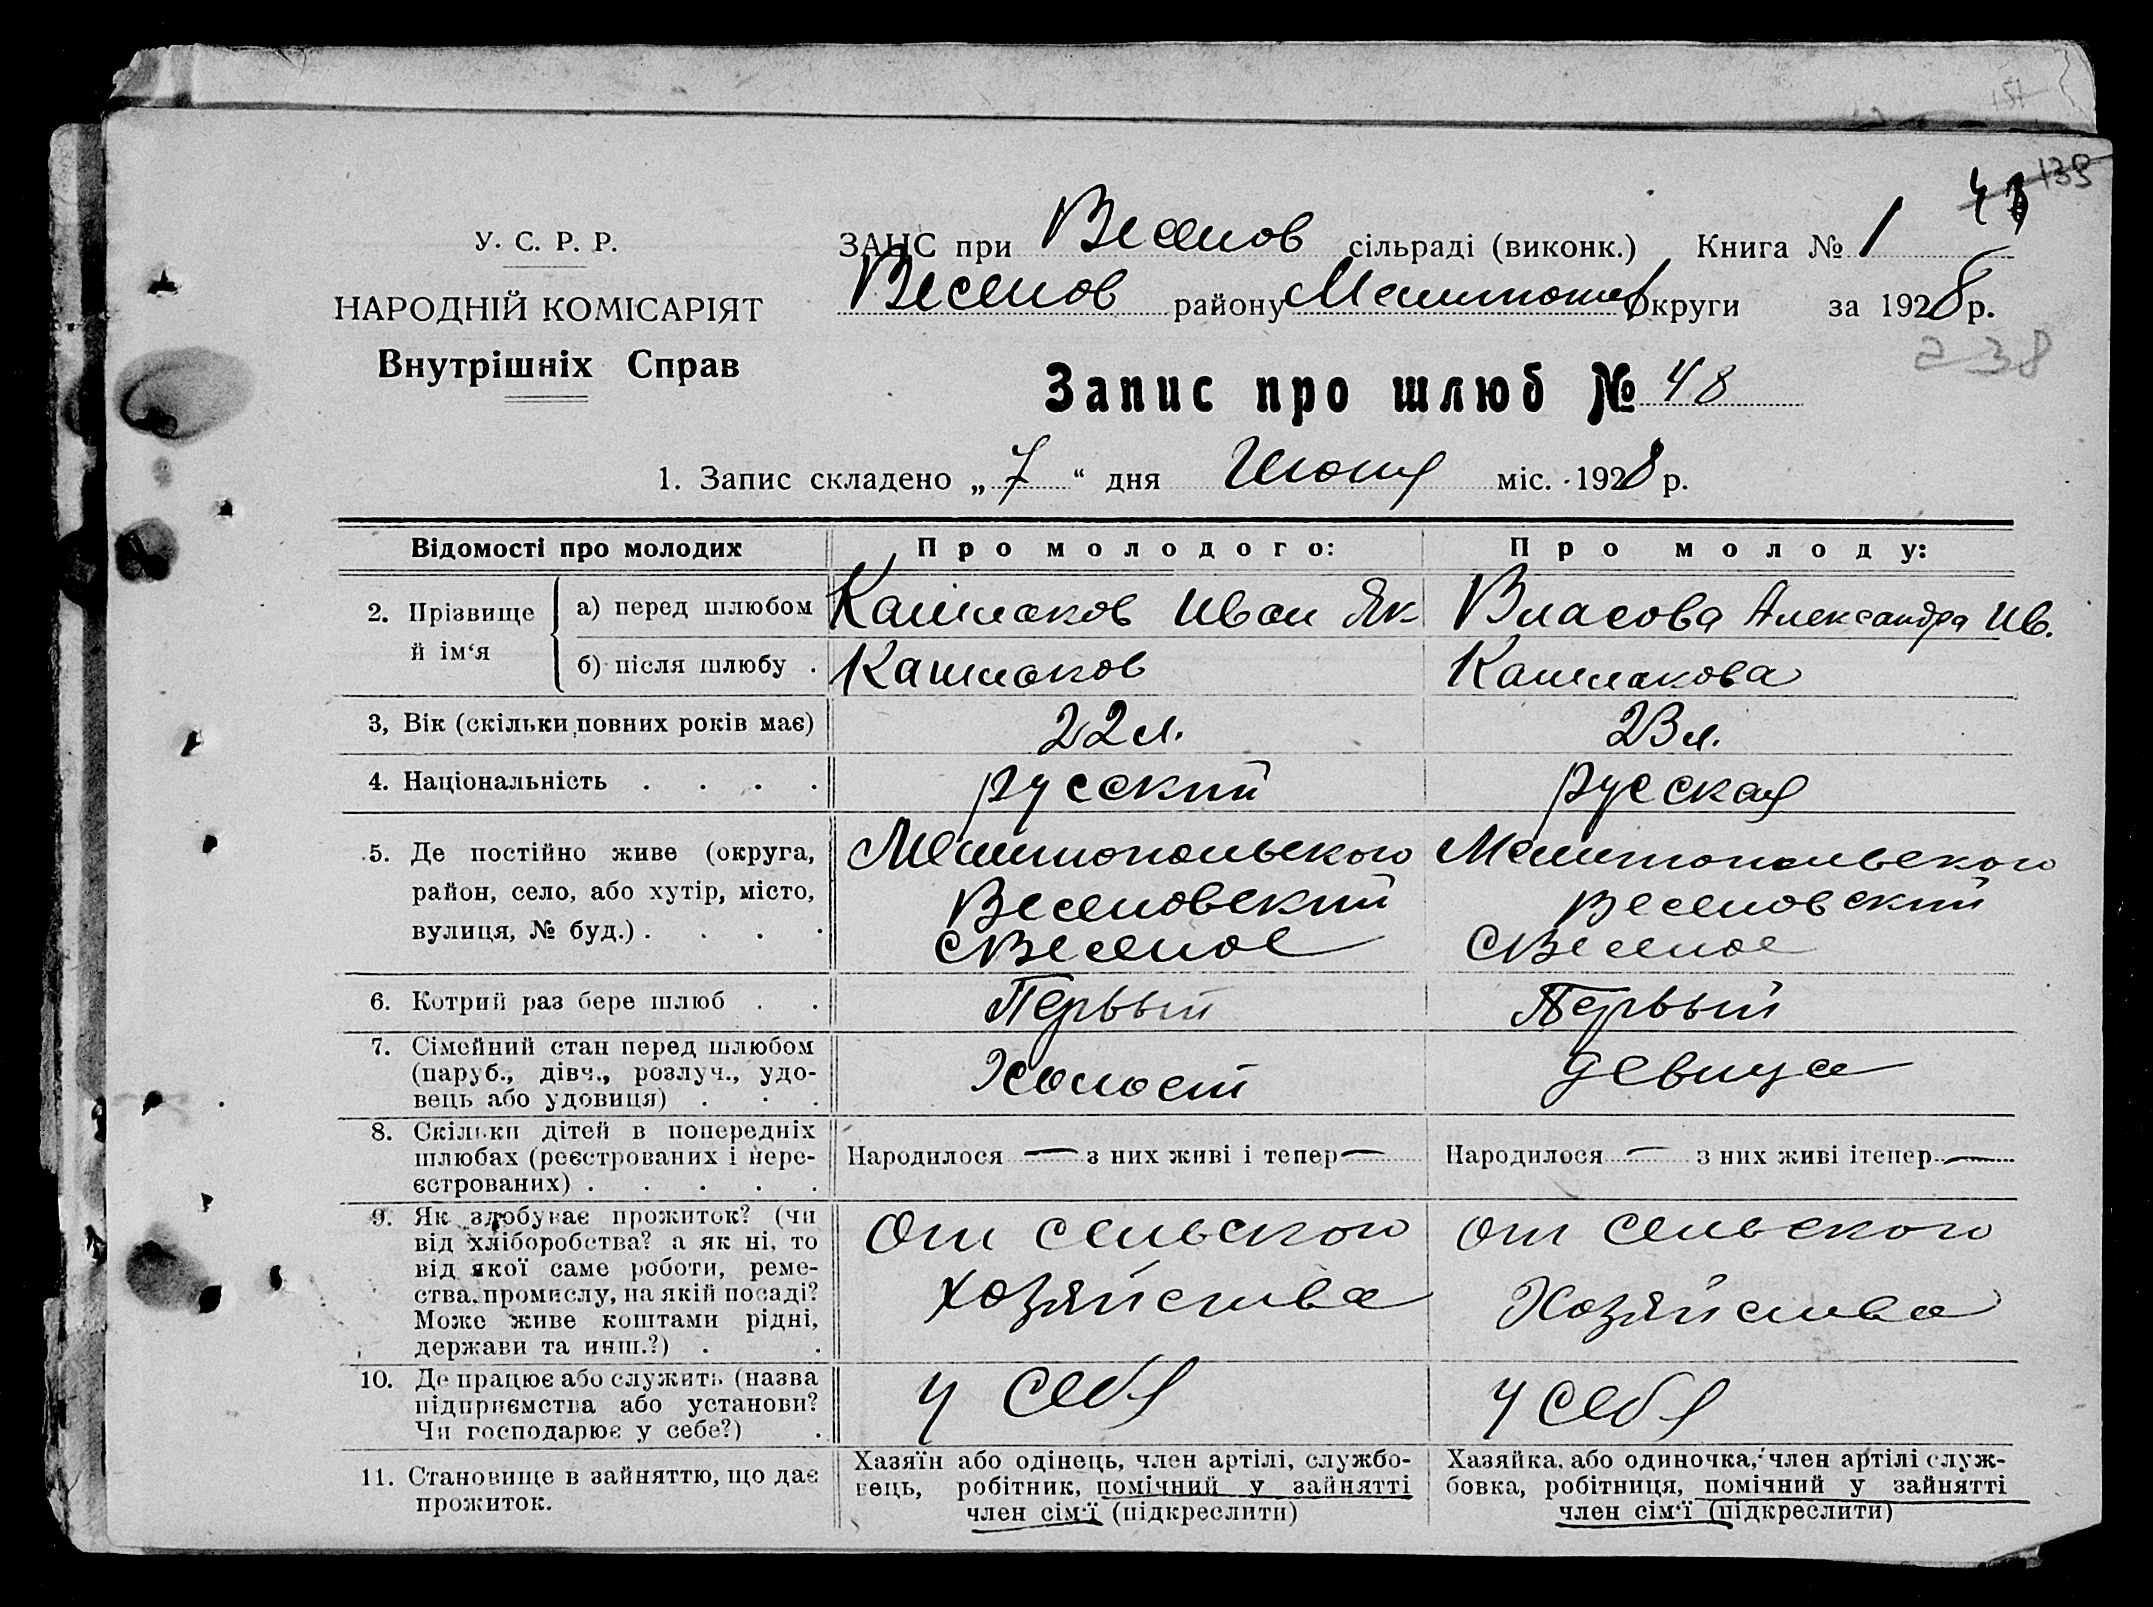 151
43 139
У. С. Р. Р.
НАРОДНІЙ КОМІСАРІЯТ
Внутрішніх Справ
ЗАЦС при Веселов сільраді (виконк.) Книга № 1
Веселов району Мелитопол округи за 1928 р.
238
Запис про шлюб № 48
1. Запис складено „ 7 “ дня Июня міс. 1928 р.
Відомості про молодих Про молодого: Про молоду:
2. Прізвище й ім‘я а) перед шлюбом Кашлаков Иван Як Власова Александра Ив.
б) після шлюбу . Кашлаков Кашлакова
3, Вік (скільки повних років має) 22 л. 23 л.
4. Національність . . . . русский русская
5. Де постійно живе (округа, Мелитопольского Мелитопольского
район, село, або хутір, місто, Веселовский Веселовский
вулиця, № буд.) . . . . С Веселое С Веселое
6. Котрий раз бере шлюб . . Первый Первый
7. Сімейний стан перед шлюбом
(паруб., дівч., розлуч., удо- Холост девица
вець або удовиця) . . .
8. Скільки дітей в попередніх
шлюбах (реєстрованих і нере- Народилося — з них живі і тепер — Народилося — з них живі ітепер —
єстрованих) . . . . .
9. Як здобуває прожиток? (чи От сельского От сельского
від хліборобства? а як ні, то
від якої саме роботи, реме-
ства, промислу, на якій посаді? хозяйства Хозяйства
Може живе коштами рідні,
держави та инш.?) . .
10. Де працює або служить (назва
підприємства або установи? у себя у себя
Чи господарює у себе?) .
11. Становище в зайняттю, що дає
прожиток.
Хазяїн або одінець, член артілі, службо-
вець, робітник, помічний у зайнятті
член сім‘ї (підкреслити)
Хазяйка, або одиночка, член артілі служ-
бовка, робітниця, помічний у зайнятті
член сім‘ї (підкреслити)